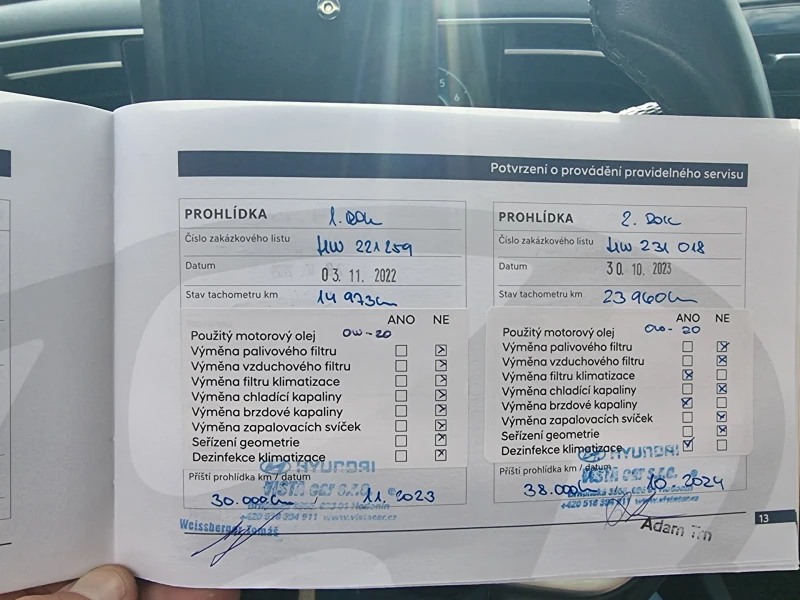 5
6
Potvrzení o provádění pravidelného servisu
PROHLÍDKA 1. ROK
Číslo zakázkového listu HW 221259
Datum 03. 11. 2022
Stav tachometru km 14 973km
ANO NE
Použitý motorový olej 0W-20
Výměna palivového filtru
Výměna vzduchového filtru
Výměna filtru klimatizace
Výměna chladící kapaliny
Výměna brzdové kapaliny
Výměna zapalovacích svíček
Seřízení geometrie
Dezinfekce klimatizace
HYUNDAI
Příští prohlídka km / datum
VISTA car s.r.o.
30.000km / 11. 2023
+420 518 394 911 www.vistacar.cz
Weissberger Tomáš
PROHLÍDKA 2. ROK
Číslo zakázkového listu HW 231 018
Datum 30. 10. 2023
Stav tachometru km 23 960km
ANO NE
Použitý motorový olej 0W-20
Výměna palivového filtru
Výměna vzduchového filtru
Výměna filtru klimatizace
Výměna chladící kapaliny
Výměna brzdové kapaliny
Výměna zapalovacích svíček
Seřízení geometrie
Dezinfekce klimatizace
HYUNDAI
Příští prohlídka km / datum
VISTA car s.r.o.
38.000km 10 - 2024
+420 518 394 911 www.vistacar.cz
Adam Trn
13